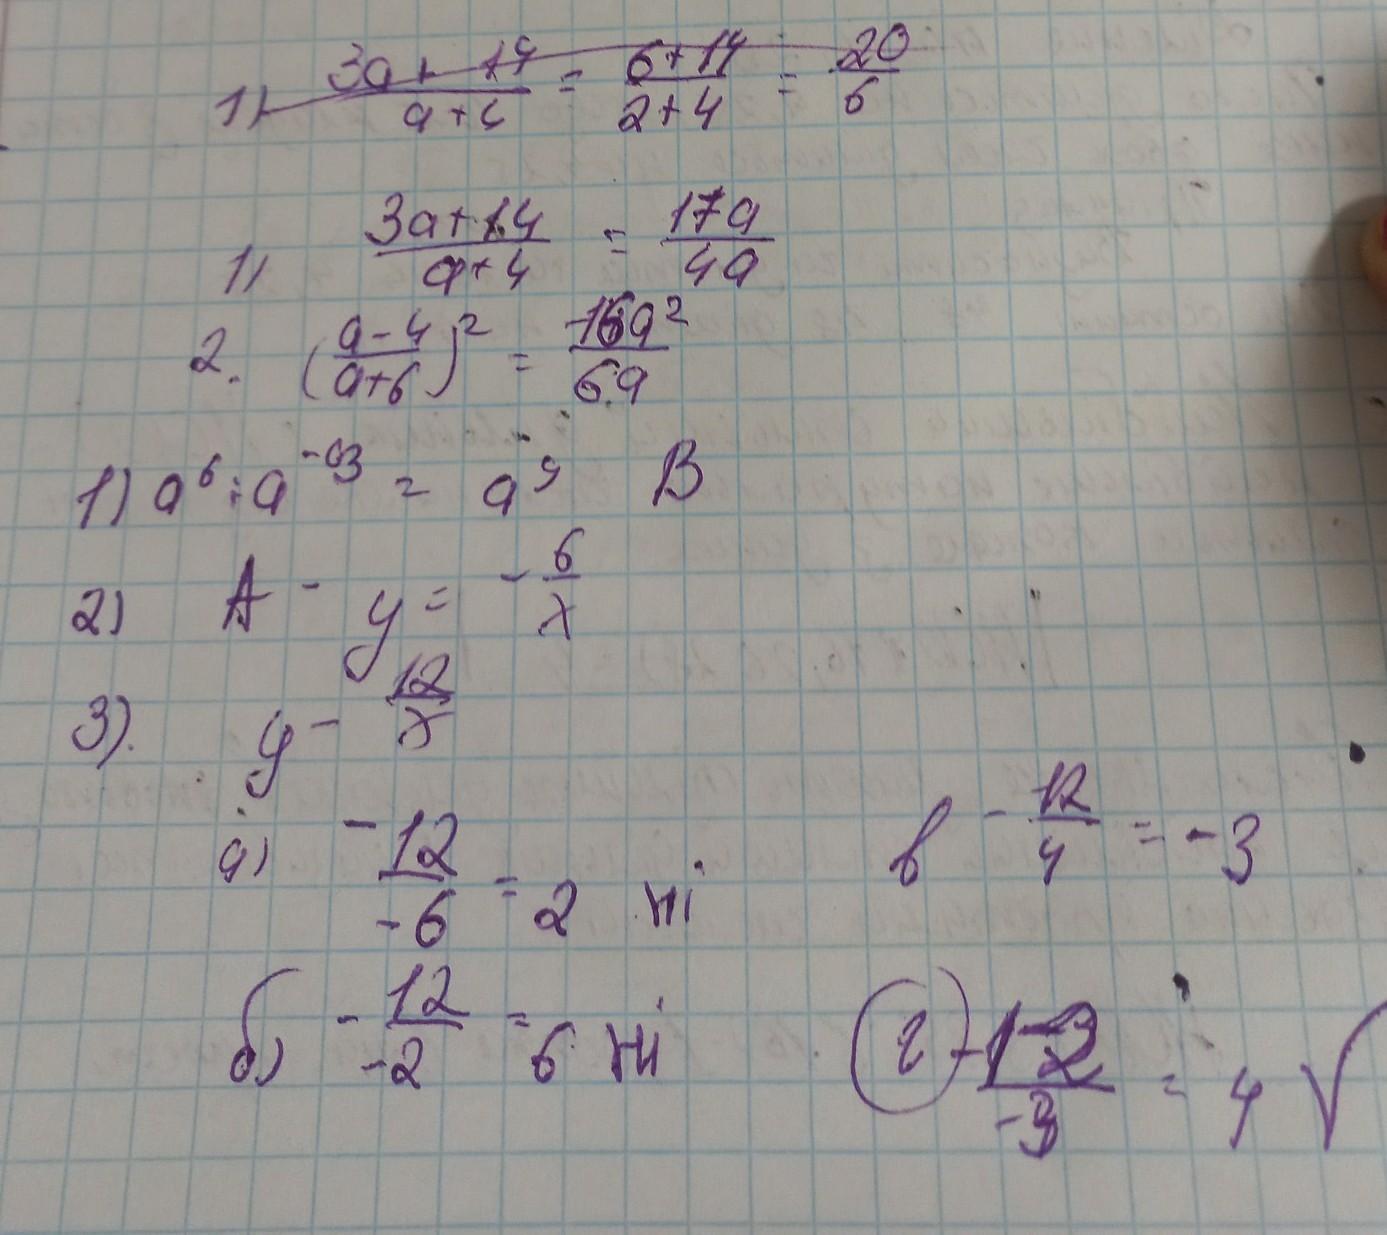 1) (3a + 14)/(a+4) = (6+14)/(2+4) = 20/6
1) (3a+14)/(a+4) = 17a/4a
2. ((a-4)/(a+6))² = -16a²/6a
1) a⁶ : a⁻³ = a⁹ В
2) А - y = - 6/x
3). y - 12/x
а) - 12/-6 = 2 ні
в - 12/4 = -3
б) - 12/-2 = 6 ні
г - 12/-3 = 4 √